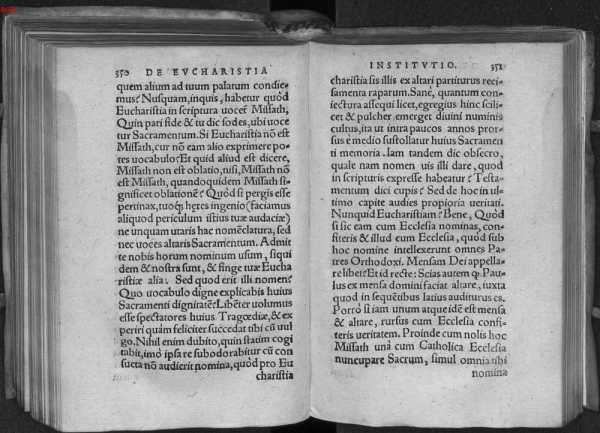 350 DE EVCHARISTIA
quem alium ad tuum palatum condie-
mus? Nusquam, inquis, habetur quòd
Eucharistia in scriptura uocet̃ Missath,
Quin pari fide & tu dic sodes, ubi uoce
tur Sacramentum. Si Eucharistia nõ est
Missath, cur nõ eam alio exprimere po-
tes uocabulo? Et quid aliud est dicere,
Missath non est oblatio, nisi, Missath nõ
est Missath, quandoquidem Missath si-
gnificet oblationẽ? Quòd si pergis esse
pertinax, tuoq; hęres ingenio (faciamus
aliquod periculum istius tuæ audaciæ)
ne unquam utaris hac nomẽclatura, sed
nec uoces altaris Sacramentum. Admit
te nobis horum nominum usum, siqui
dem & nostra sunt, & finge tuæ Eucha
ristiæ alia. Sed quod erit illi nomen?
Quo uocabulo digne explicabis huius
Sacramenti dignitatẽ? Libẽter uolumus
esse spectatores huius Tragœdiæ, & ex
periri quàm feliciter succedat tibi cũ uul
go. Nihil enim dubito, quin statim cogi
tabit, imò ipsa re subodorabitur cũ con
sueta nõ audierit nomina, quòd pro Eu
charistia
INSTITVTIO. 351
charistia sis illis ex altari partiturus reci-
samenta raparum. Sanè, quantum con-
iectura assequi licet, egregius hinc scili-
cet & pulcher emerget diuini numinis
cultus, ita ut intra paucos annos pror-
sus è medio sustollatur huius Sacramen
ti memoria. Iam tandem dic obsecro,
quale nam nomen uis illi dare, quod
in scripturis expresse habeatur? Testa-
mentum dici cupis? Sed de hoc in ul-
timo capite audies propioria ueritati.
Nunquid Eucharistiam? Bene, Quòd
si sic eam cum Ecclesia nominas, con-
fiteris & illud cum Ecclesia, quòd sub
hoc nomine intellexerunt omnes Pa-
tres Orthodoxi. Mensam Dei appella-
re libet? Et id recte: Scias autem q̃ Pau-
lus ex mensa domini faciat altare, iuxta
quod in sequẽtibus latius auditurus es.
Porrò si iam unum atque idẽ est mensa
& altare, rursus cum Ecclesia confi-
teris ueritatem. Proinde cum nolis hoc
Missath unà cum Catholica Ecclesia
nuncupare Sacrum, simul omnia tibi
nomina